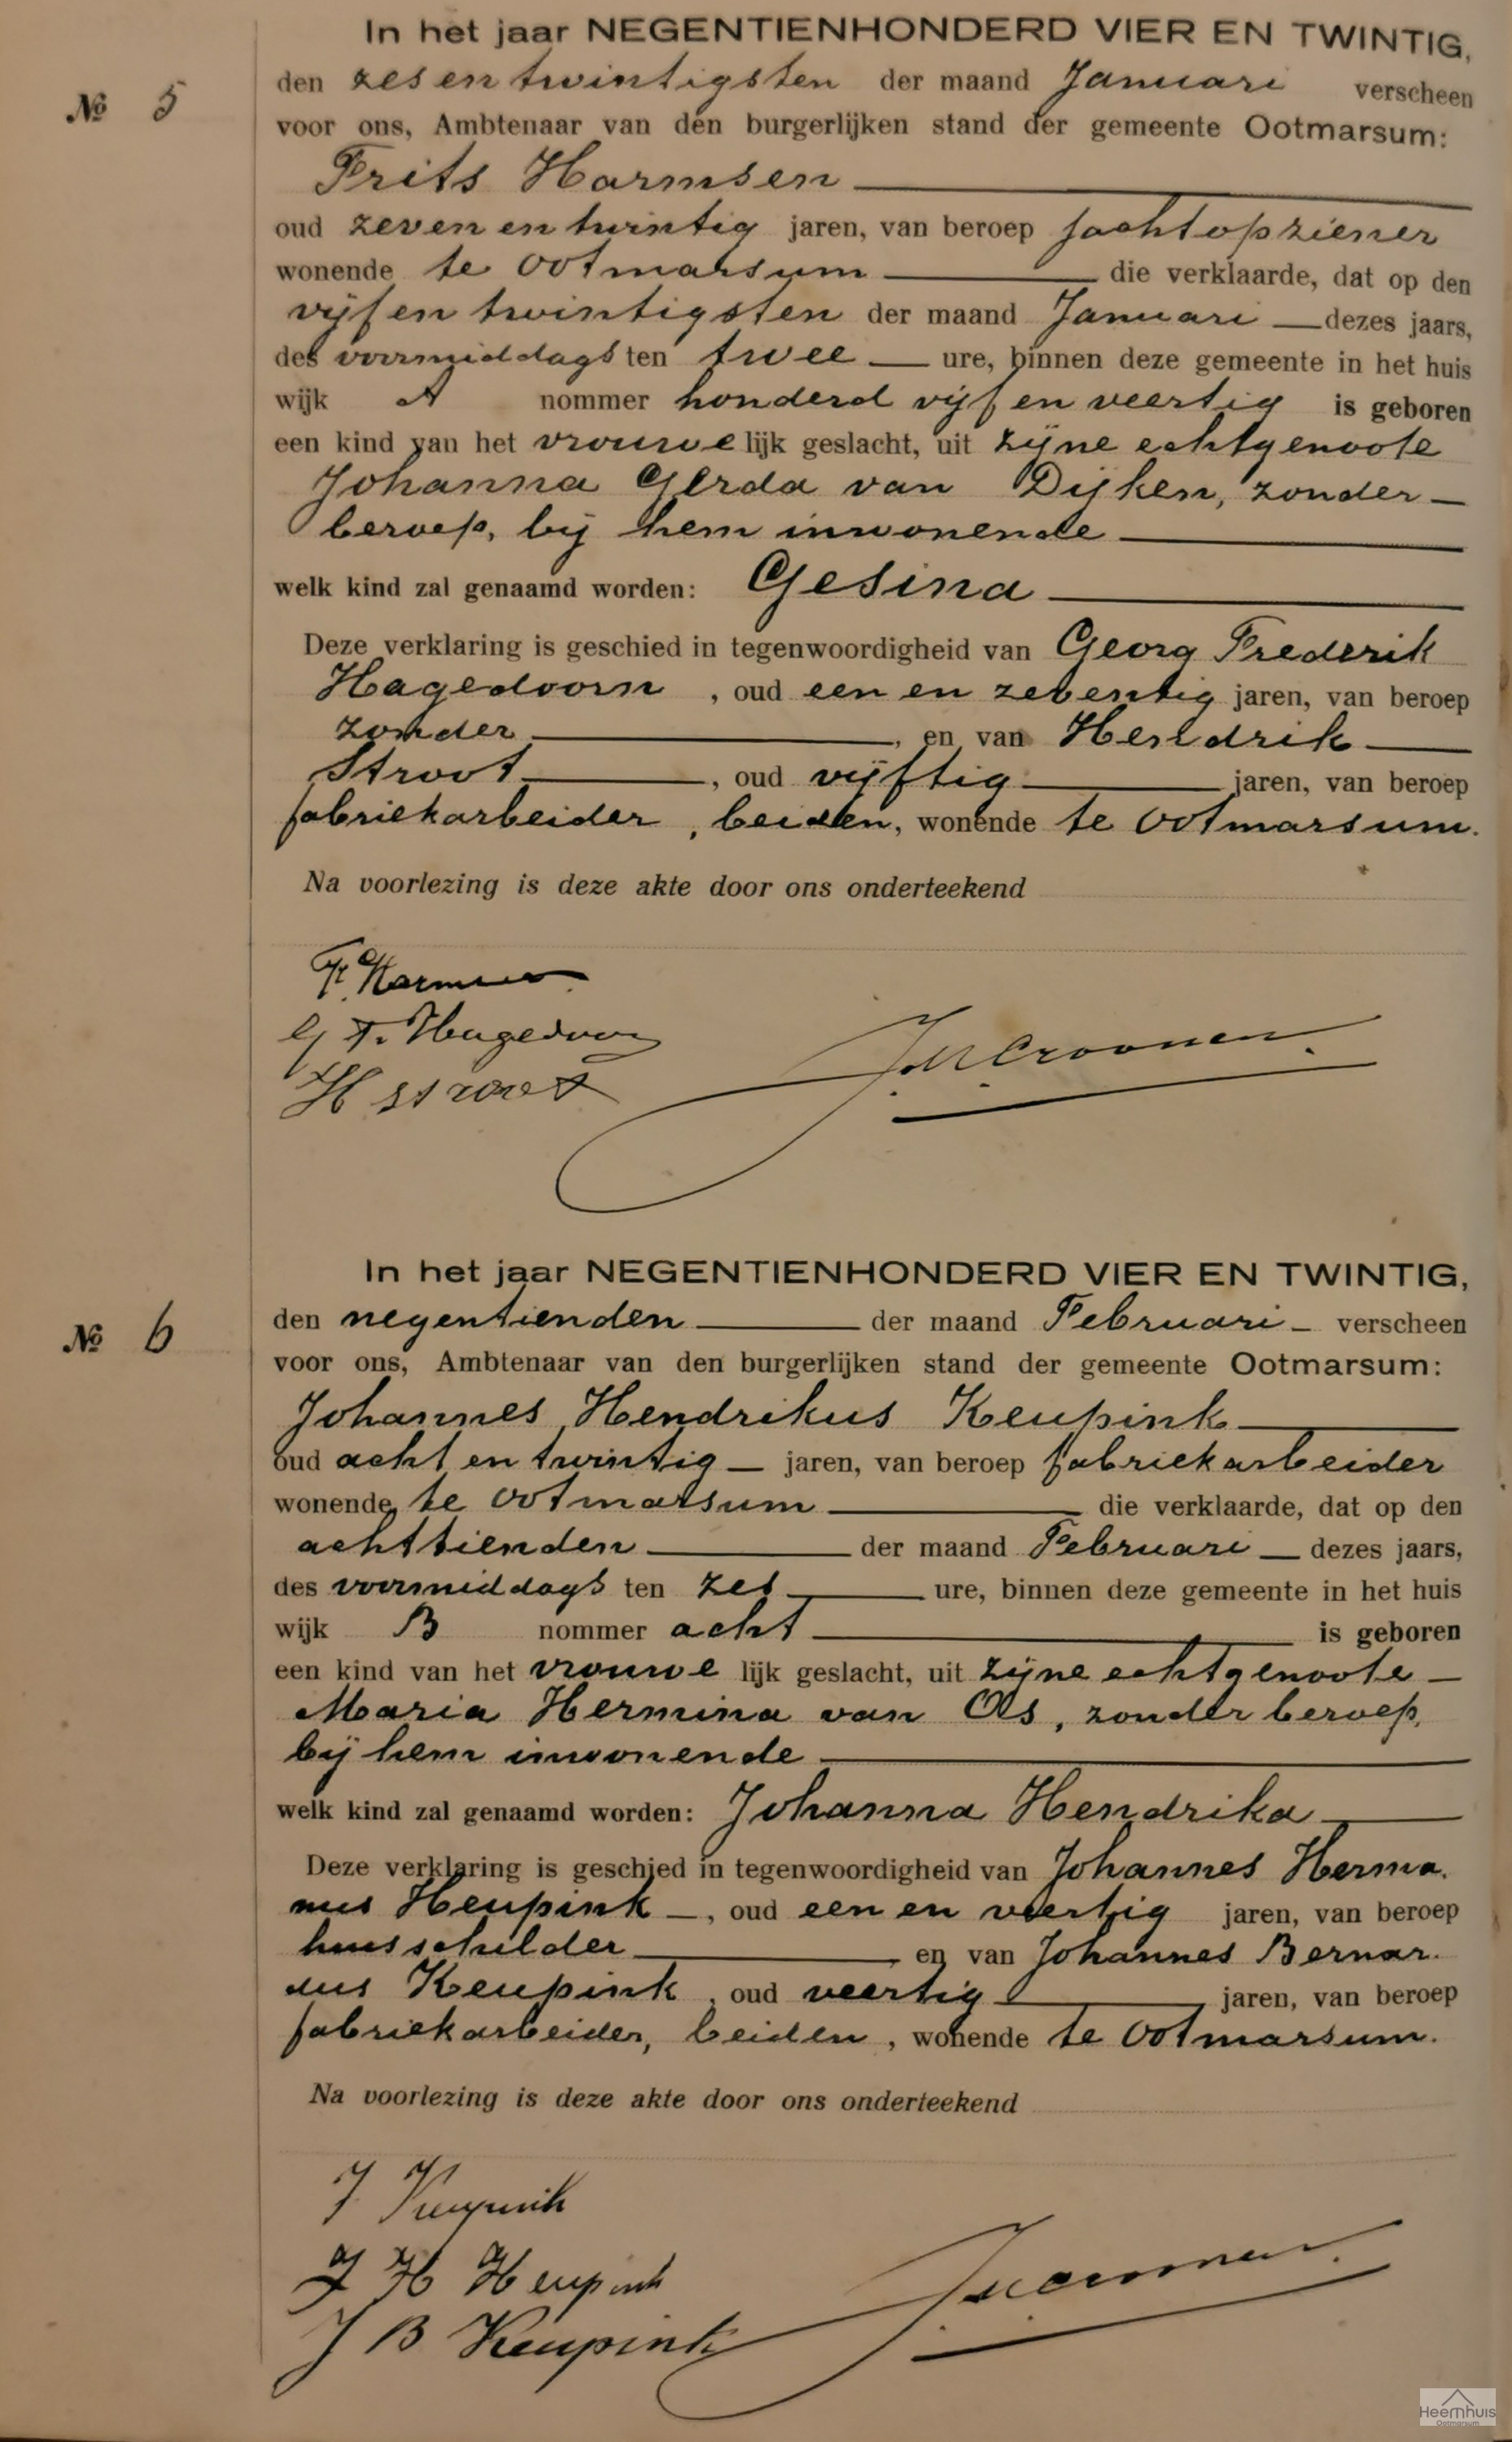 In het jaar NEGENTIENHONDERD VIER EN TWINTIG,
№ 5
den zes en twintigsten der maand Januari verscheen
voor ons, Ambtenaar van den burgerlijken stand der gemeente Ootmarsum:
Frits Harmsen
oud zeven en twintig jaren, van beroep jachtopziener
wonende te Ootmarsum die verklaarde, dat op den
vijf en twintigsten der maand Januari dezes jaars,
des voormiddags ten twee ure, binnen deze gemeente in het huis
wijk A nommer honderd vijf en veertig is geboren
een kind van het vrouwelijk geslacht, uit zijne echtgenoote
Johanna Gerda van Dijken, zonder-
beroep, bij hem inwonende
welk kind zal genaamd worden: Gesina
Deze verklaring is geschied in tegenwoordigheid van Georg Frederik
Hagedoorn, oud een en zeventig jaren, van beroep
zonder, en van Hendrik
Stroot, oud vijftig jaren, van beroep
fabriekarbeider, beiden, wonende te Ootmarsum.
Na voorlezing is deze akte door ons onderteekend
F. Harmsen
G F. Hagedoorn
H stroot
In het jaar NEGENTIENHONDERD VIER EN TWINTIG,
№ 6
den negentienden der maand Februari verscheen
voor ons, Ambtenaar van den burgerlijken stand der gemeente Ootmarsum:
Johannes Hendrikus Keupink
oud acht en twintig jaren, van beroep fabriekarbeider
wonende te Ootmarsum die verklaarde, dat op den
achttienden der maand Februari dezes jaars,
des voormiddags ten zes ure, binnen deze gemeente in het huis
wijk B nommer acht is geboren
een kind van het vrouwelijk geslacht, uit zijne echtgenoote
Maria Hermina van Os, zonder beroep,
bij hem inwonende
welk kind zal genaamd worden: Johanna Hendrika
Deze verklaring is geschied in tegenwoordigheid van Johannes Herma.
nus Heupink, oud een en veertig jaren, van beroep
huisschilder en van Johannes Bernar.
dus Keupink, oud veertig, jaren, van beroep
fabriekarbeider, beiden, wonende te Ootmarsum.
Na voorlezing is deze akte door ons onderteekend
J Keupink
J H Heupink
J B Keupink
Heemhuis
Ootmarsum